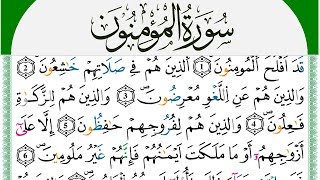 سورة المؤمنون
قَدْ أَفْلَحَ الْمُؤْمِنُونَ ١ الَّذِينَ هُمْ فِي صَلَاتِهِمْ خَاشِعُونَ ٢
وَالَّذِينَ هُمْ عَنِ اللَّغْوِ مُعْرِضُونَ ٣ وَالَّذِينَ هُمْ لِلزَّكَاةِ
فَاعِلُونَ ٤ وَالَّذِينَ هُمْ لِفُرُوجِهِمْ حَافِظُونَ ٥ إِلَّا عَلَىٰ
أَزْوَاجِهِمْ أَوْ مَا مَلَكَتْ أَيْمَانُهُمْ فَإِنَّهُمْ غَيْرُ مَلُومِينَ ٦